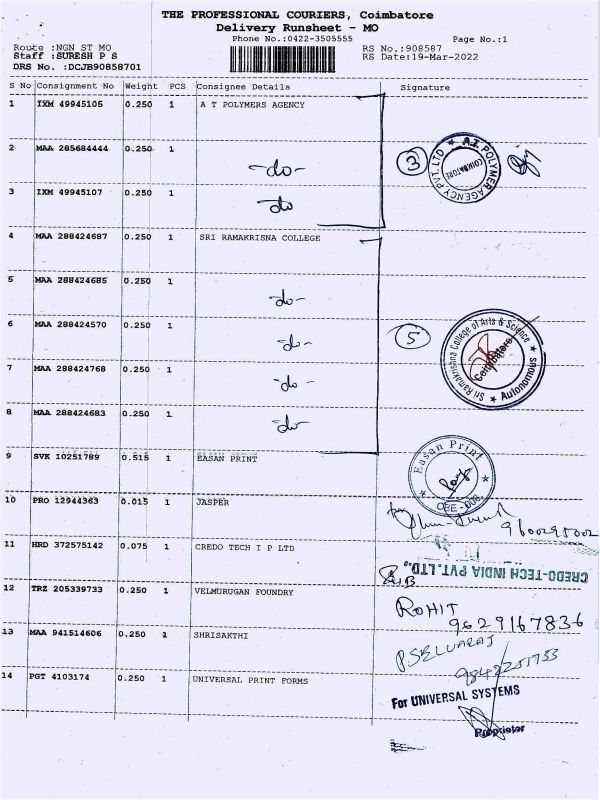 THE PROFESSIONAL COURIERS, Coimbatore
Delivery Runsheet - MO
Phone No.:0422-3505555
Page No.:1
Route :NGN ST MO
RS No.:908587
Staff :SURESH P S
RS Date:19-Mar-2022
DRS No. :DCJB90858701
S No Consignment No Weight PCS Consignee Details Signature
1 IXM 49945105 0.250 1 A T POLYMERS AGENCY
2 MAA 285684444 0.250 1 -do-
3 A.T. POLYMER AGENCY PVT. LTD COIMBATORE
3 IXM 49945107 0.250 1 do
4 MAA 288424687 0.250 1 SRI RAMAKRISNA COLLEGE
5 MAA 288424685 0.250 1 -do-
6 MAA 288424570 0.250 1 -do-
5 Sri Ramakrishna College of Arts & Science Coimbatore Autonomous
7 MAA 288424768 0.250 1 -do-
8 MAA 288424683 0.250 1 -do-
9 SVK 10251789 0.515 1 EASAN PRINT
Easan Print CBE-006.
10 PRO 12944363 0.015 1 JASPER
11 HRD 372575142 0.075 1 CREDO TECH I P LTD
CREDO-TECH INDIA PVT.LTD.,
12 TRZ 205339733 0.250 1 VELMURUGAN FOUNDRY
ROHIT
9629167836
13 MAA 941514606 0.250 1 SHRISAKTHI
P SELVARAJ
14 PGT 4103174 0.250 1 UNIVERSAL PRINT FORMS
For UNIVERSAL SYSTEMS
Proprietor